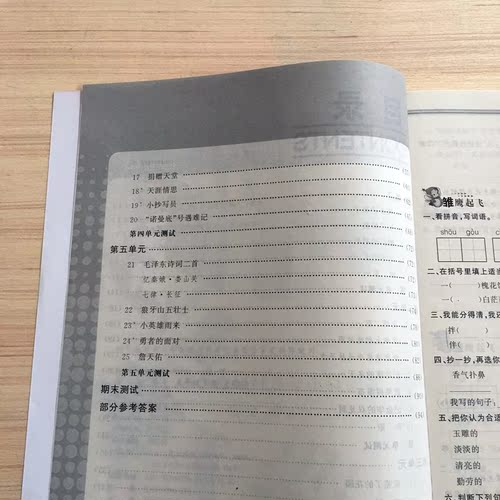 17 捐赠天堂
18* 天涯情思
19* 小抄写员
20 “诺曼底”号遇难记
第四单元测试
第五单元
21 毛泽东诗词二首
忆秦娥·娄山关
七律·长征
22 狼牙山五壮士
23* 小英雄雨来
24* 勇者的面对
25 詹天佑
第五单元测试
期末测试
部分参考答案
雏鹰起飞
一、看拼音,写词语。
sháu gòu
二、在括号里填上适
一( )槐花
一( )白茫
三、我能分得清,我还
拌( )
伴( )
四、抄一抄,再选你
香气扑鼻
我写的句子:
五、把你认为合适
玉雕的
淡淡的
清亮的
勤劳的
六、判断下列句